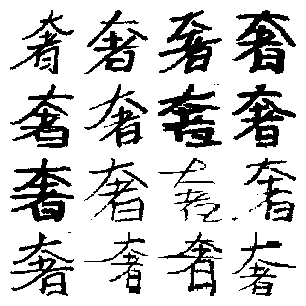 奢奢奢奢
奢奢奢奢
奢奢奢奢
奢奢奢奢